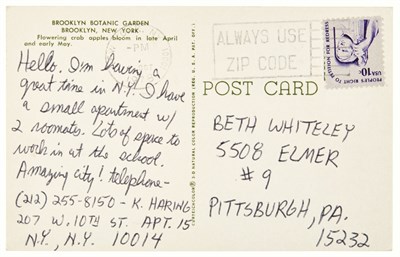 BROOKLYN BOTANIC GARDEN
BROOKLYN, NEW YORK
Flowering crab apples bloom in late April
and early May.
Hello. I'm having a
great time in N.Y. I have
a small apartment w/
2 roomates. Lots of space to
work in at the school.
Amazing city! telephone-
(212) 255-8150 - K. HARING
207 W. 10TH ST. APT. 15
N.Y., N.Y. 10014
PM
ALWAYS USE
ZIP CODE
USA 10c
PEOPLE'S RIGHT TO
PETITION FOR REDRESS
POST CARD
BETH WHITELEY
5508 ELMER
#9
PITTSBURGH, PA.
15232